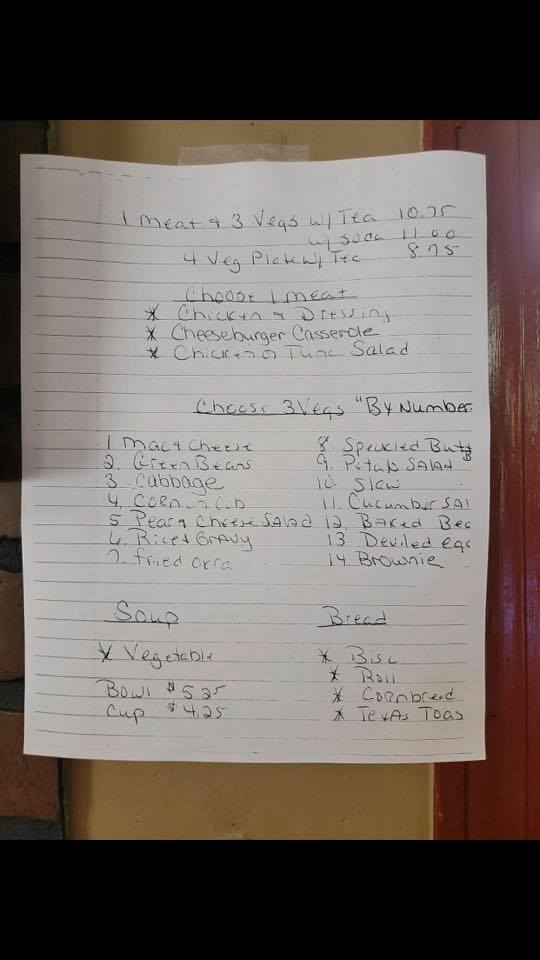 1 Meat & 3 Vegs w/ Tea 10.75
w/ Soda 11.00
4 Veg Plate w/ Tea 8.75
Choose 1 meat
* Chicken & Dressing
* Cheeseburger Casserole
* Chicken or Tuna Salad
Choose 3 Vegs "By Number
1. Mac & Cheese
2. Green Beans
3. Cabbage
4. Corn on Cob
5 Pear & Cheese SALAD
6. Rice & GRAVY
7. fried okra
8. Speckled Butt
9. Potato SALAD
10. Slaw
11. Cucumber SAl
12. BAKED Bea
13. Deviled egg
14. Brownie
Soup
* Vegetable
Bowl $5.25
Cup $4.25
Bread
* Bisc
* Roll
* Cornbread
* TexAs TOAS